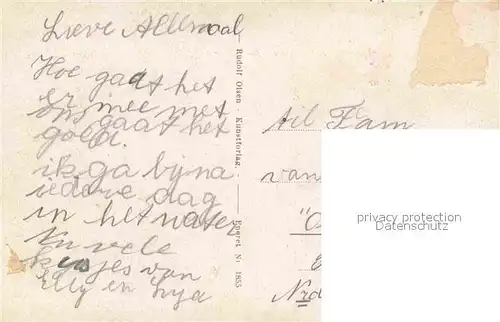 Lieve Allemaal
Hoe gaat het
er mee met
ons gaat het
goed.
ik ga bijna
iedere dag
in het water
Nu vele
kusjes van
Elly en Lya
Rudolf Olsen Kunstforlag. Eneret No 1855
Fam
van
"O
Nrd
privacy protection
Datenschutz